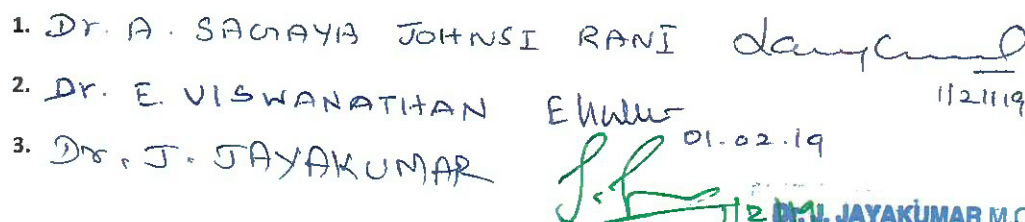 1. Dr. A. SAGAYA JOHNSI RANI
1/2/19
2. Dr. E. VISWANATHAN
01.02.19
3. Dr. J. JAYAKUMAR
Dr. J. JAYAKUMAR M.C